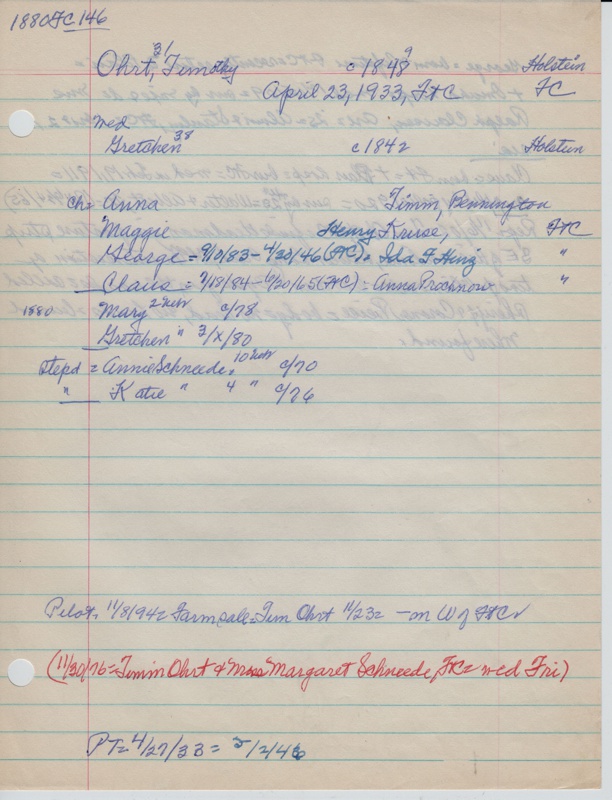 1880 FC 146
Ohrt, Timothy 31 c 1848 9 Holstein
April 23, 1933, FtC FC
med
Gretchen 38 c 1842 Holstein
ch = Anna Timm, Pennington
"Maggie Henry Kruse, FtC
George = 9/10/83 - 4/20/46 (FtC) = Ida F Hinz "
Claus = 7/18/84 - 6/30/65 (FtC) = Anna Prochnow "
1880 Mary 2 c/78
Gretchen " 3/x/80
stepd = Annie Schneede, 10 c/70
" Katie " 4 " c/76
Pilot, 11/8/94 = Farm sale = Tim Ohrt 11/23 = - m W of FtC
(11/30/76 = Timm Ohrt & Miss Margaret Schneede, FtC = med Fri)
PT = 4/27/33 = 5/2/46